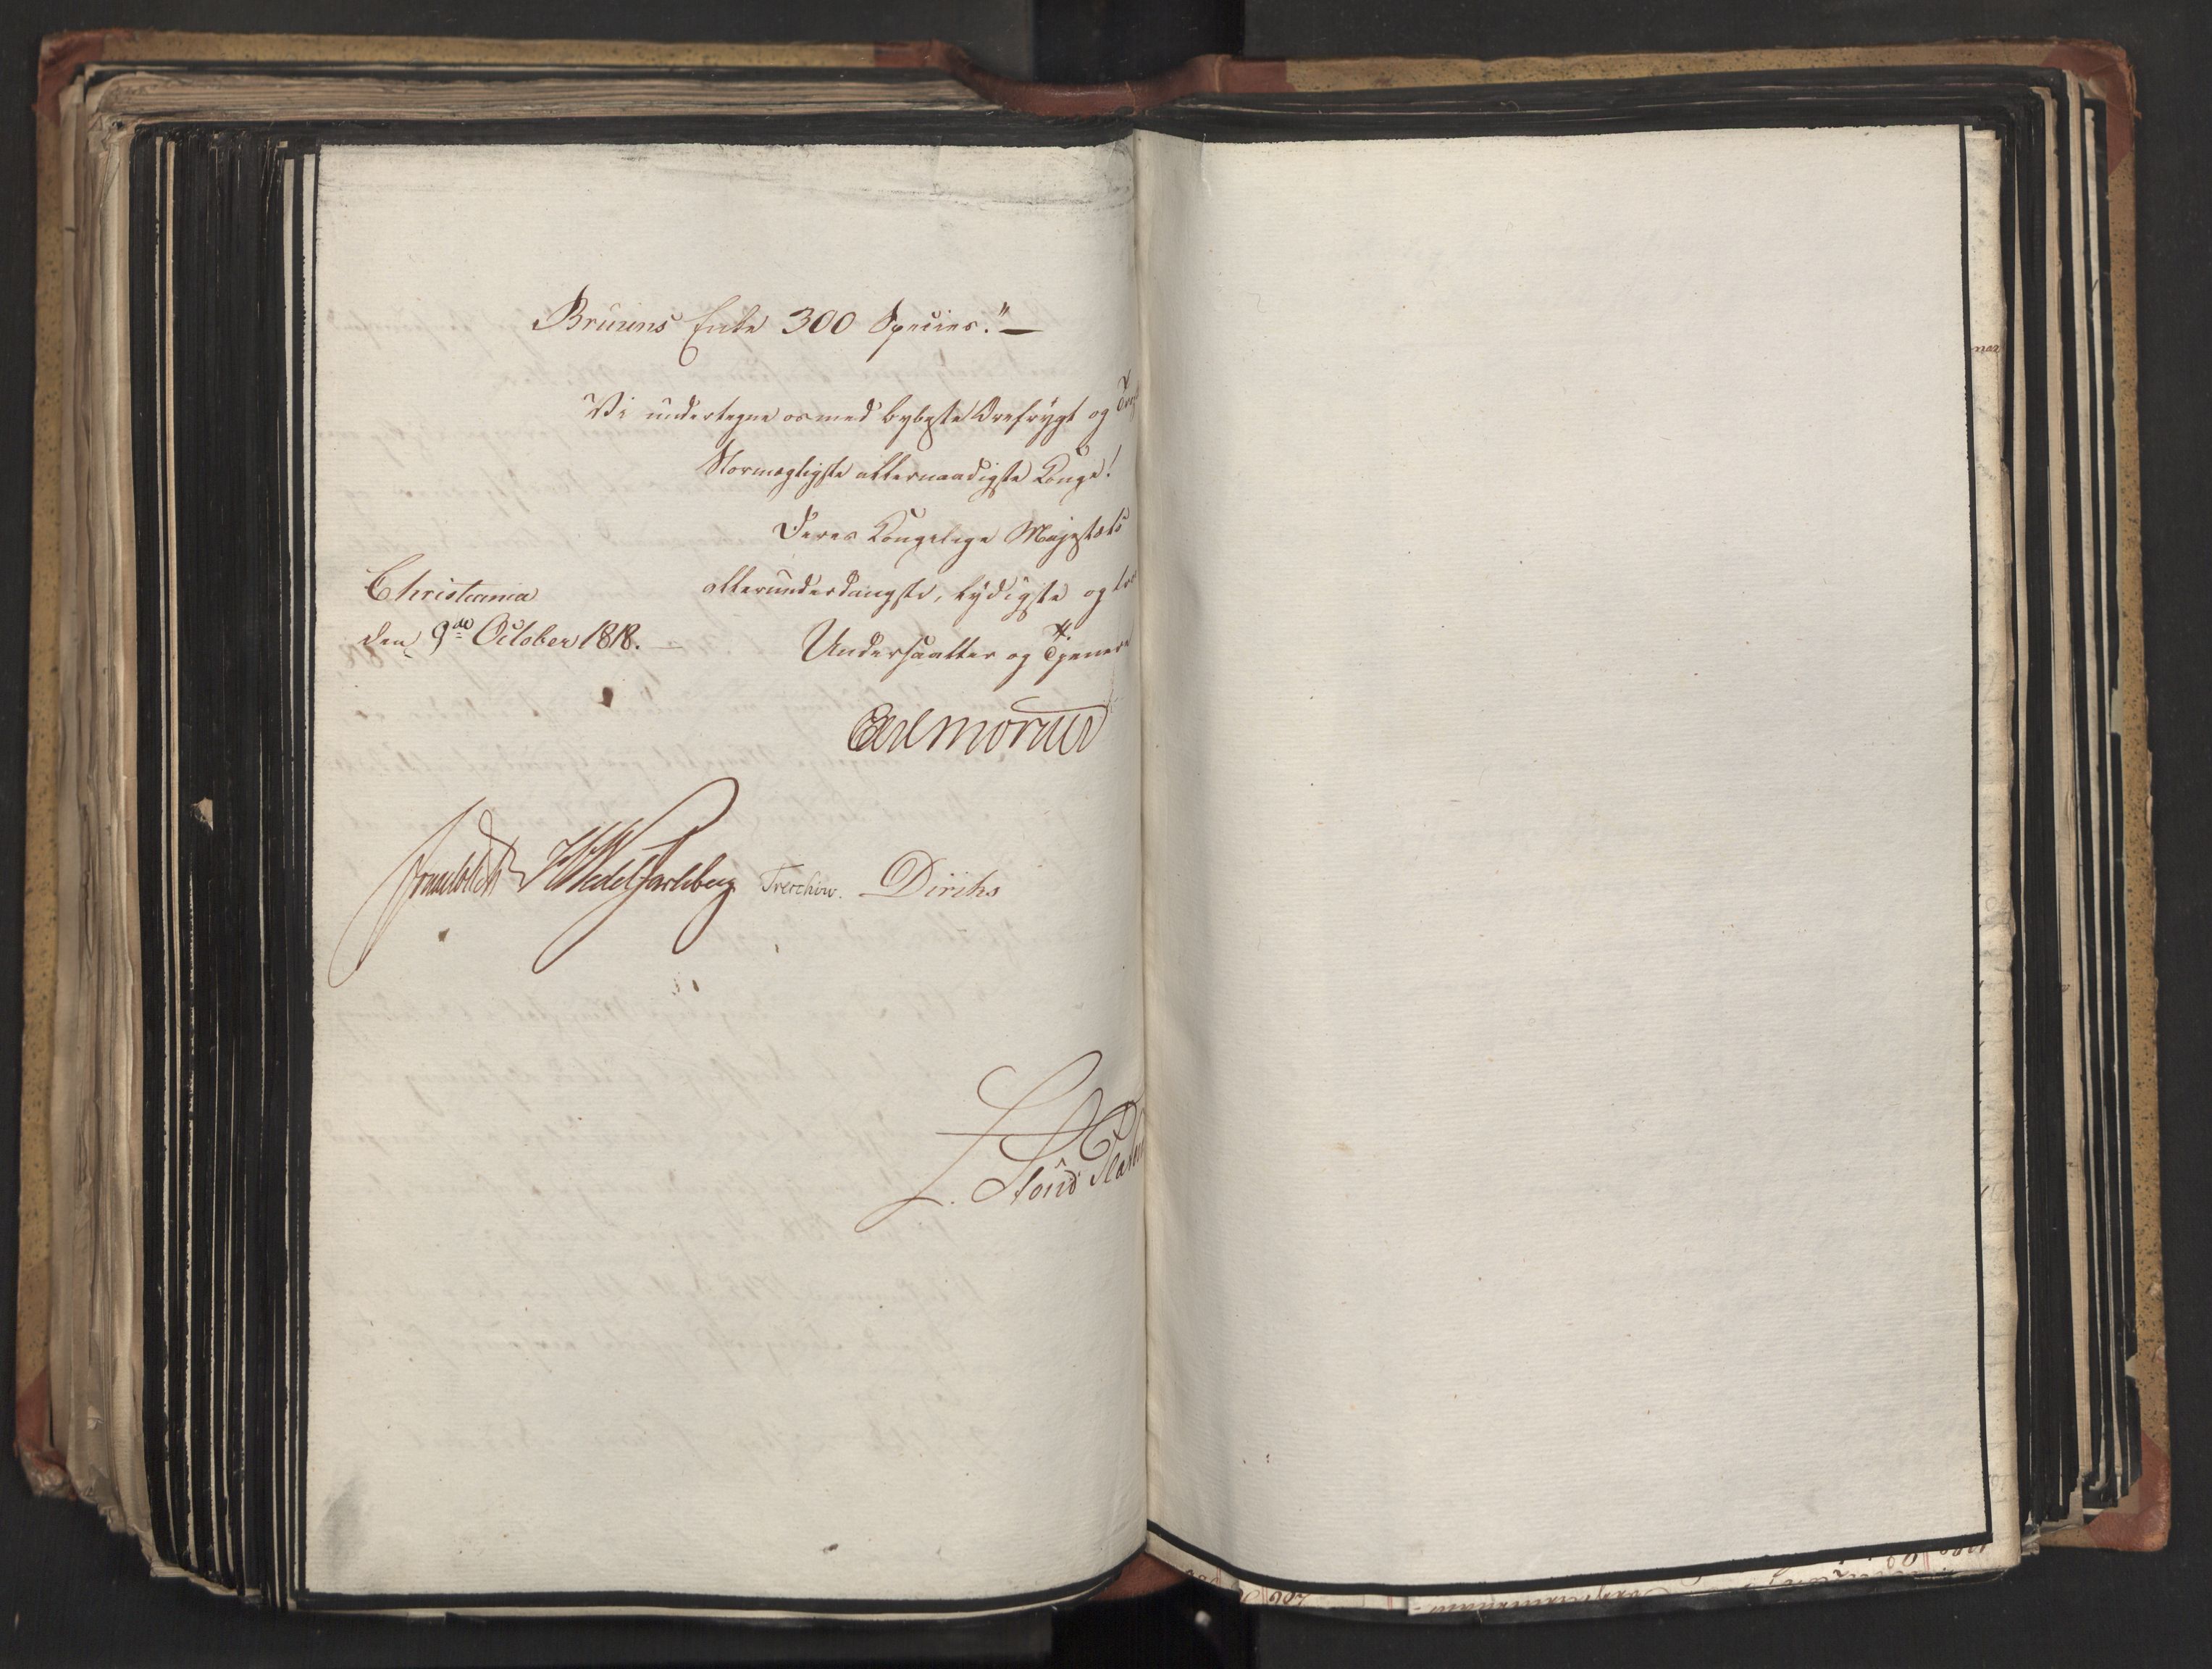 Bruuns Enke 300 Species."—
Vi undertegne os med dybeste Ærefrygt og
Stormægtigste allernaadigste Konge!
Deres Kongelige Majestæts
allerunderdanigste, lydigste og
Undersaatter og Tjenere
Christiania
den 9de October 1818.
Carl Mörner
Sommerhielm HWedelJarlsberg Treschow. Diriks
L. Stoud Platou